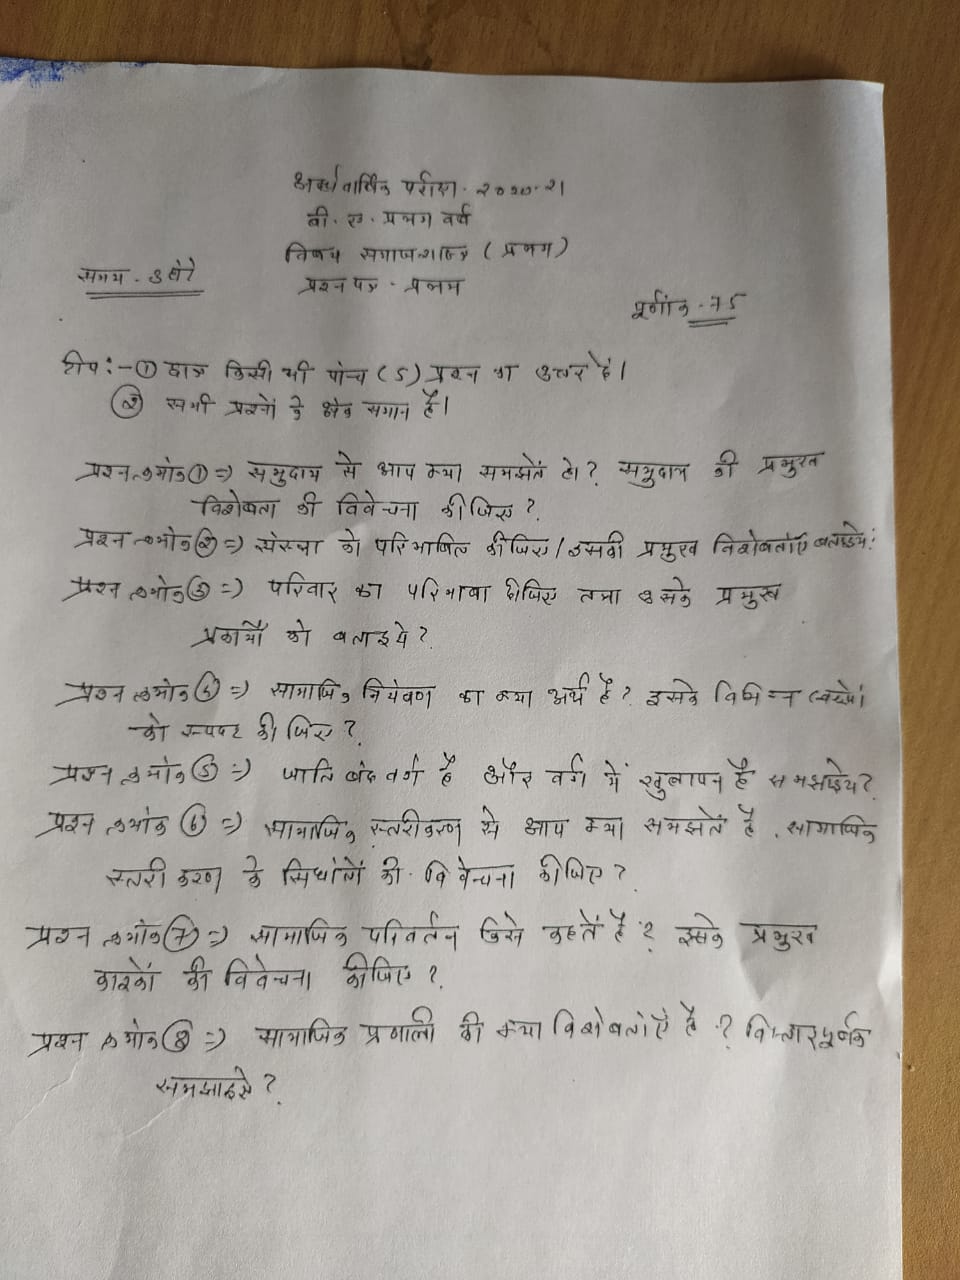 अर्धवार्षिक परीक्षा - २०२०-२१
बी. ए. प्रथम वर्ष
विषय समाजशास्त्र (प्रथम)
समय - ३ घंटे
प्रश्न पत्र - प्रथम
पूर्णांक - 75
टीप :- ① छात्र किसी भी पांच (5) प्रश्न का उत्तर दें।
② सभी प्रश्नों के अंक समान है।
प्रश्न क्रमांक ① => समुदाय से आप क्या समझतें हो? समुदाय की प्रमुख
विशेषता की विवेचना कीजिए?
प्रश्न क्रमांक ② => संस्था को परिभाषित कीजिए/उसकी प्रमुख विशेषताएँ बताइये?
प्रश्न क्रमांक ③ => परिवार का परिभाषा दीजिए तथा उसके प्रमुख
प्रकार्यों को बताइये?
प्रश्न क्रमांक ④ => सामाजिक नियंत्रण का क्या अर्थ है? इसके विभिन्न स्वरूपों
को स्पष्ट कीजिए?
प्रश्न क्रमांक ⑤ => जाति बंद वर्ग है और वर्ग में खुलापन है समझाइये?
प्रश्न क्रमांक ⑥ => सामाजिक स्तरीकरण से आप क्या समझतें है. सामाजिक
स्तरीकरण के सिधांतों की विवेचना कीजिए?
प्रश्न क्रमांक ⑦ => सामाजिक परिवर्तन किसे कहतें है? इसके प्रमुख
कारकों की विवेचना कीजिए?
प्रश्न क्रमांक ⑧ => सामाजिक प्रणाली की क्या विशेषताएँ है? विस्तारपूर्वक
समझाइये?